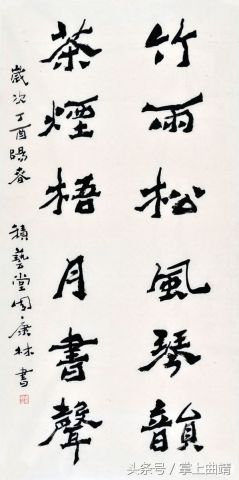 竹雨松風琴韻
茶煙梧月書聲
歲次丁酉陽春 積藝堂周康林書
头条号/掌上曲靖